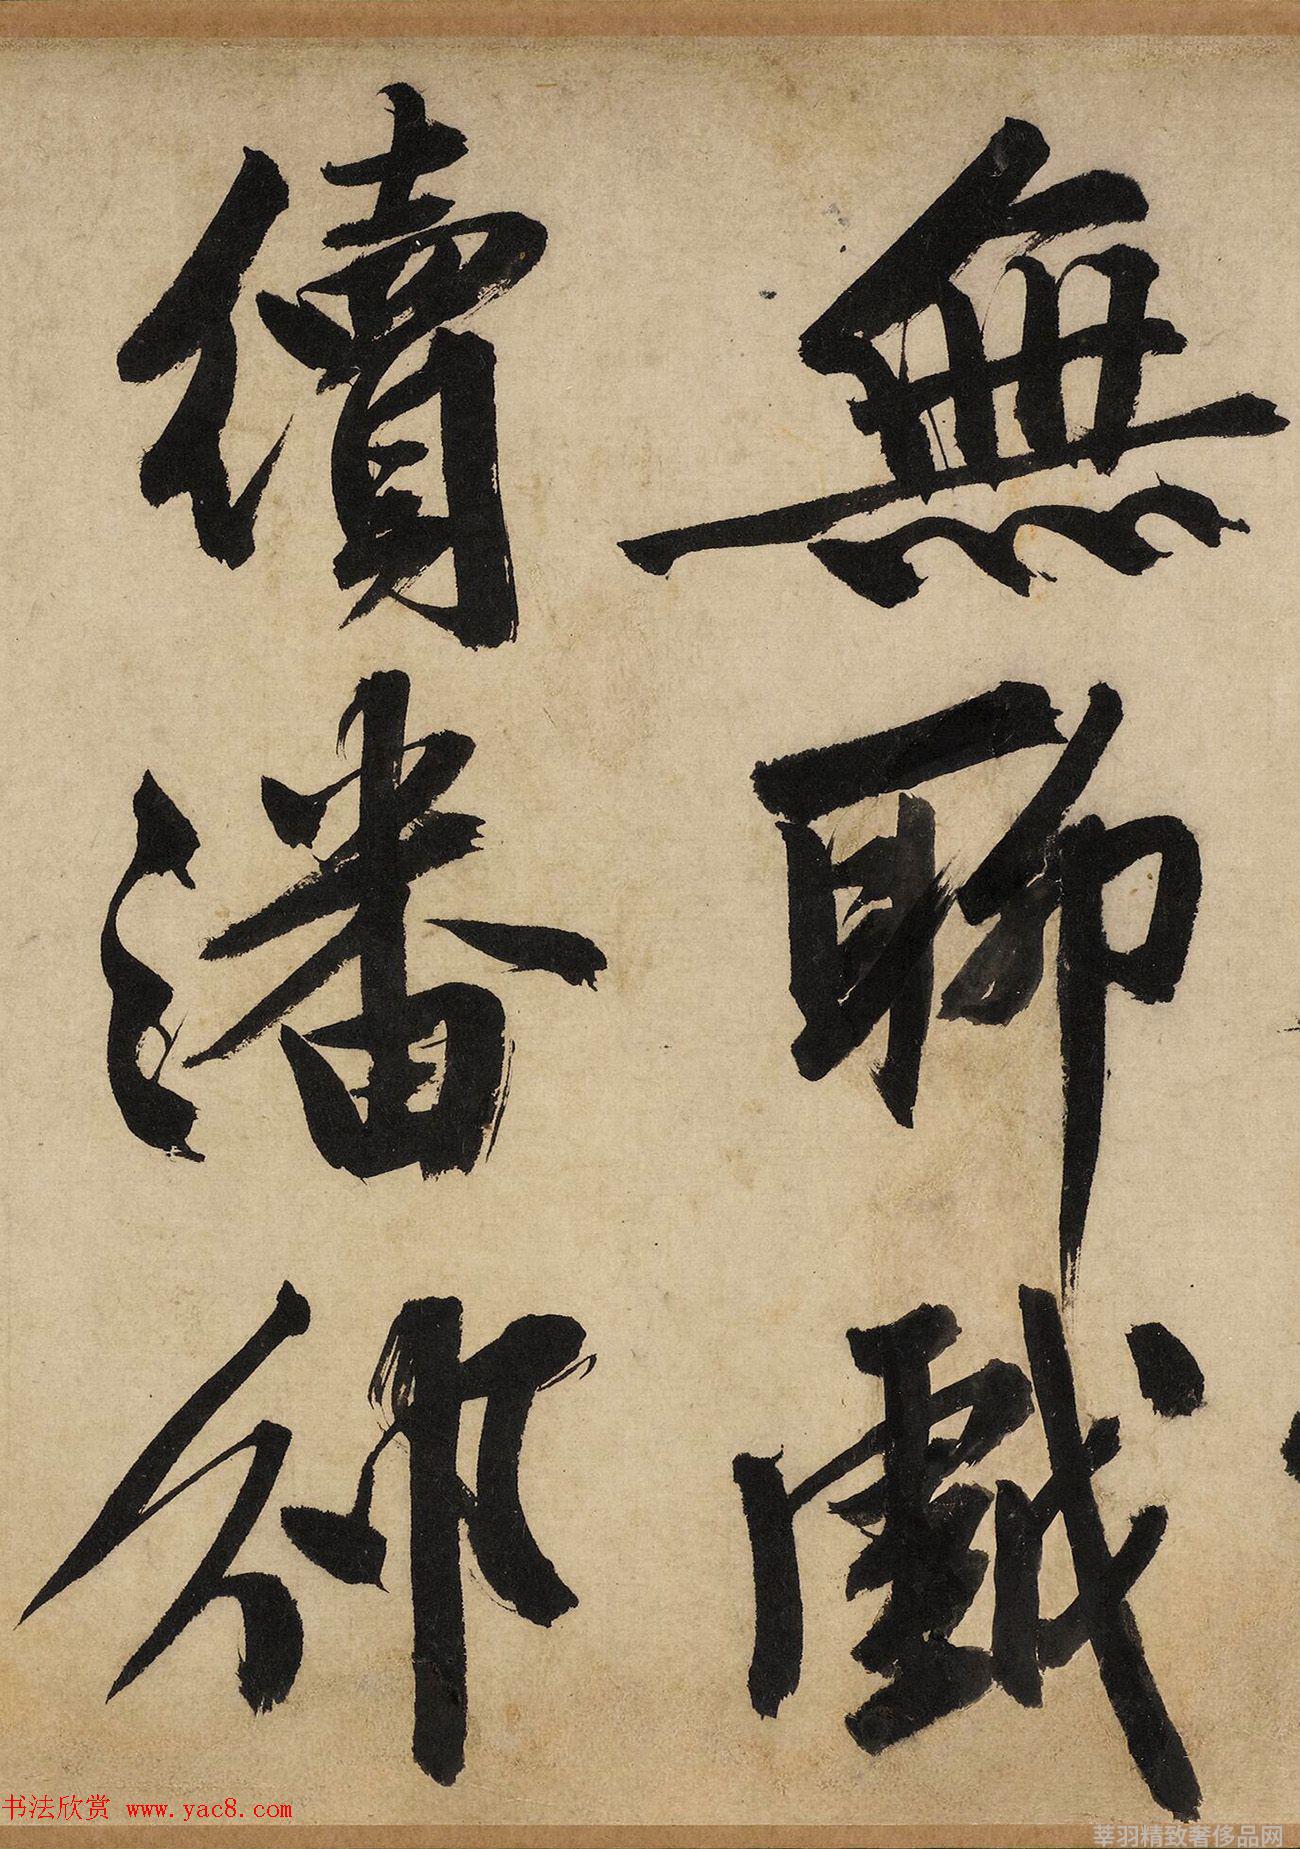 無聊戲
續潘邠
书法欣赏 www.yac8.com
莘羽精致奢侈品网